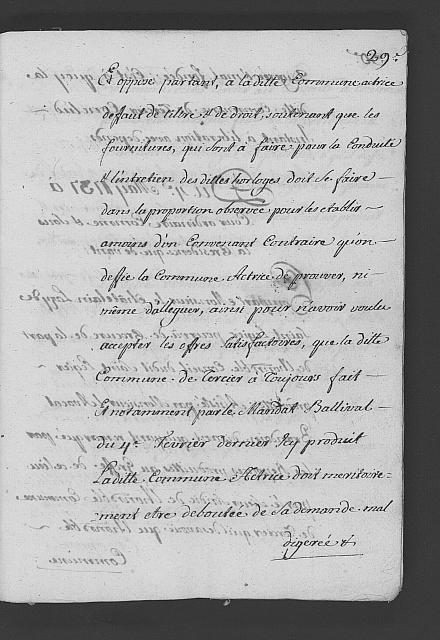 29.
Et oppose partant, a la ditte Commune actrice
deffaut de titre et de droit, soutenant que les
fournitures, qui sont à faire pour la Conduite
et l'intretien des dittes horloges doit se faire
dans la proportion observée pour les etablir
amoins d'on Convenant Contraire qu'on
deffie la Commune Actrice de prouver, ni
même d'alleguer, ainsi pour n'avoir voulu
accepter les offres satisfactoires, que la ditte
Commune de Cercier a Toujours fait
Et notamment par le Mandat Ballival
du 4e. Fevrier dernier Icy produit
La ditte Commune Actrice doit meritoire-
ment etre deboutée de sa demande mal
digerée &